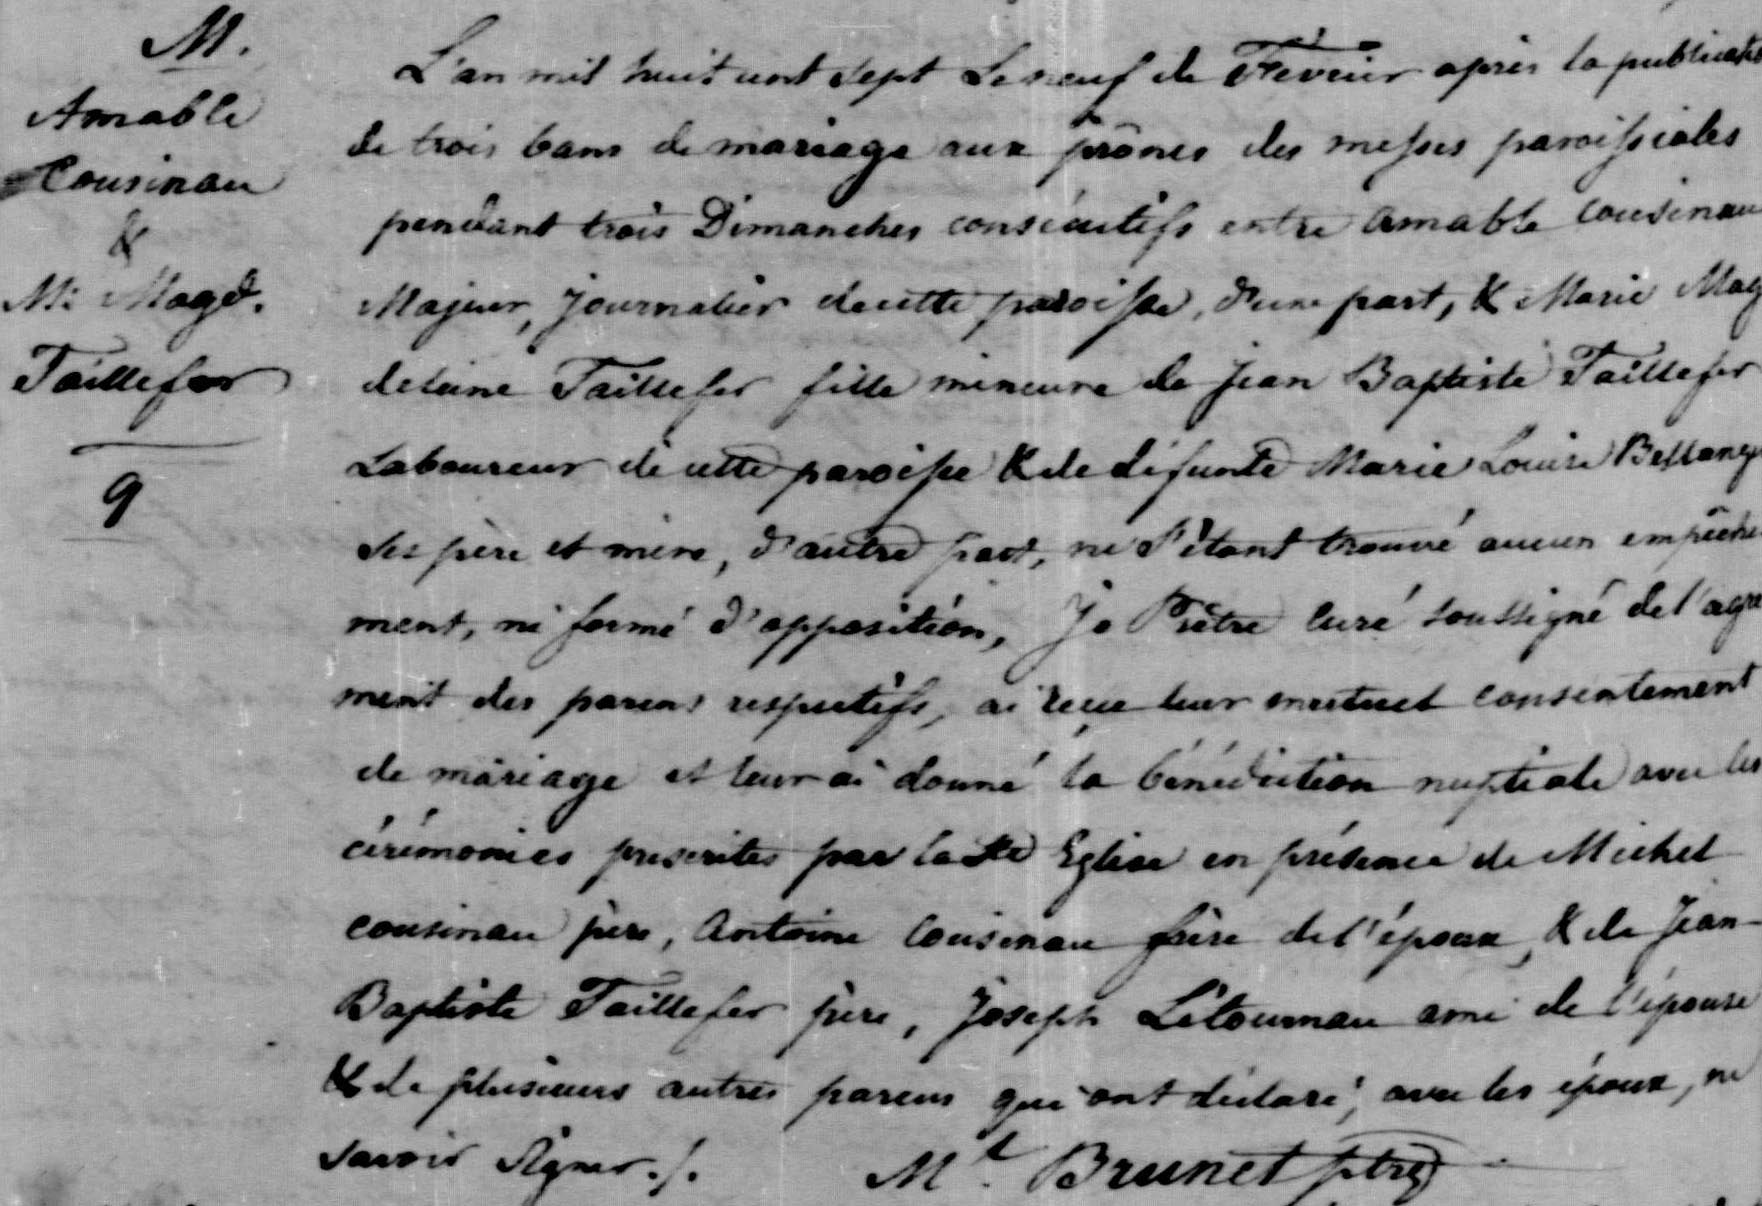 M.
Amable
Cousinau
&
M: Magd.
Taillefer
9
L'an mil huit cent sept Le neuf de Fevrier après la publicatio
de trois bans de mariage aux prônes des messes paroissiales
pendant trois Dimanches consécutifs entre Amable Cousinau
Majeur, Journalier de cette paroisse, d'une part, & Marie Mag
deleine Taillefer fille mineure de Jean Baptiste Taillefer
Laboureur de cette paroisse & de défunte Marie Louise Bellange
ses père et mère, d'autre part, ne s'étant trouvé aucun empêche
ment, ni formé d'opposition, Je Prêtre Curé soussigné de l'agré
ment des parens respectifs, ai reçu leur mutuel consentement
de mariage et leur ai donné la bénédiction nuptiale avec les
cérémonies prescrites par la Ste Eglise en présence de Michel
cousinau père, Antoine Cousinau frère de l'époux, & de Jean
Baptiste Taillefer père, Joseph Létournau ami de l'épouse
& de plusieurs autres parens qui ont déclaré, avec les époux, ne
savoir signer./.
Ml. Brunet ptre